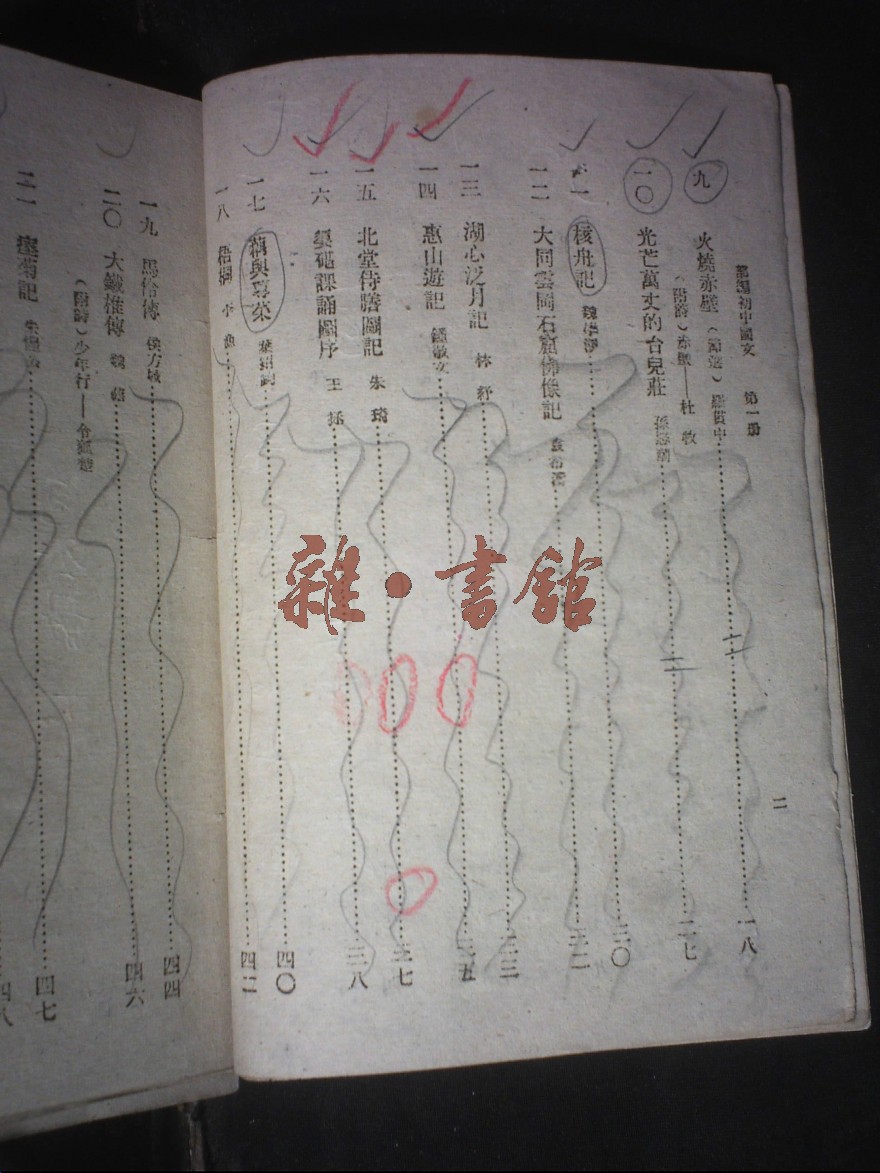 初中國文　第一册
九　火燒赤壁（節選）羅貫中……一八
（附詩）赤壁——杜　牧
一〇　光芒萬丈的台兒莊……二七
一一　核舟記　魏學洢……三〇
一二　大同雲岡石窟佛像記　袁希濤……三二
一三　湖心泛月記　林　紓……三三
一四　惠山遊記　鍾敬文……三五
一五　北堂侍膳圖記　朱　琦……三七
一六　課誦圖序　王　拯……三八
一七　藕與蓴菜　葉紹鈞……四〇
一八　梧桐　李　漁……四二
二
一九　馬伶傳　侯方域……四四
二〇　大鐵椎傳　魏　禧……四六
（附詩）少年行——令狐楚
二一　菊記……四七
四八
雜·書館